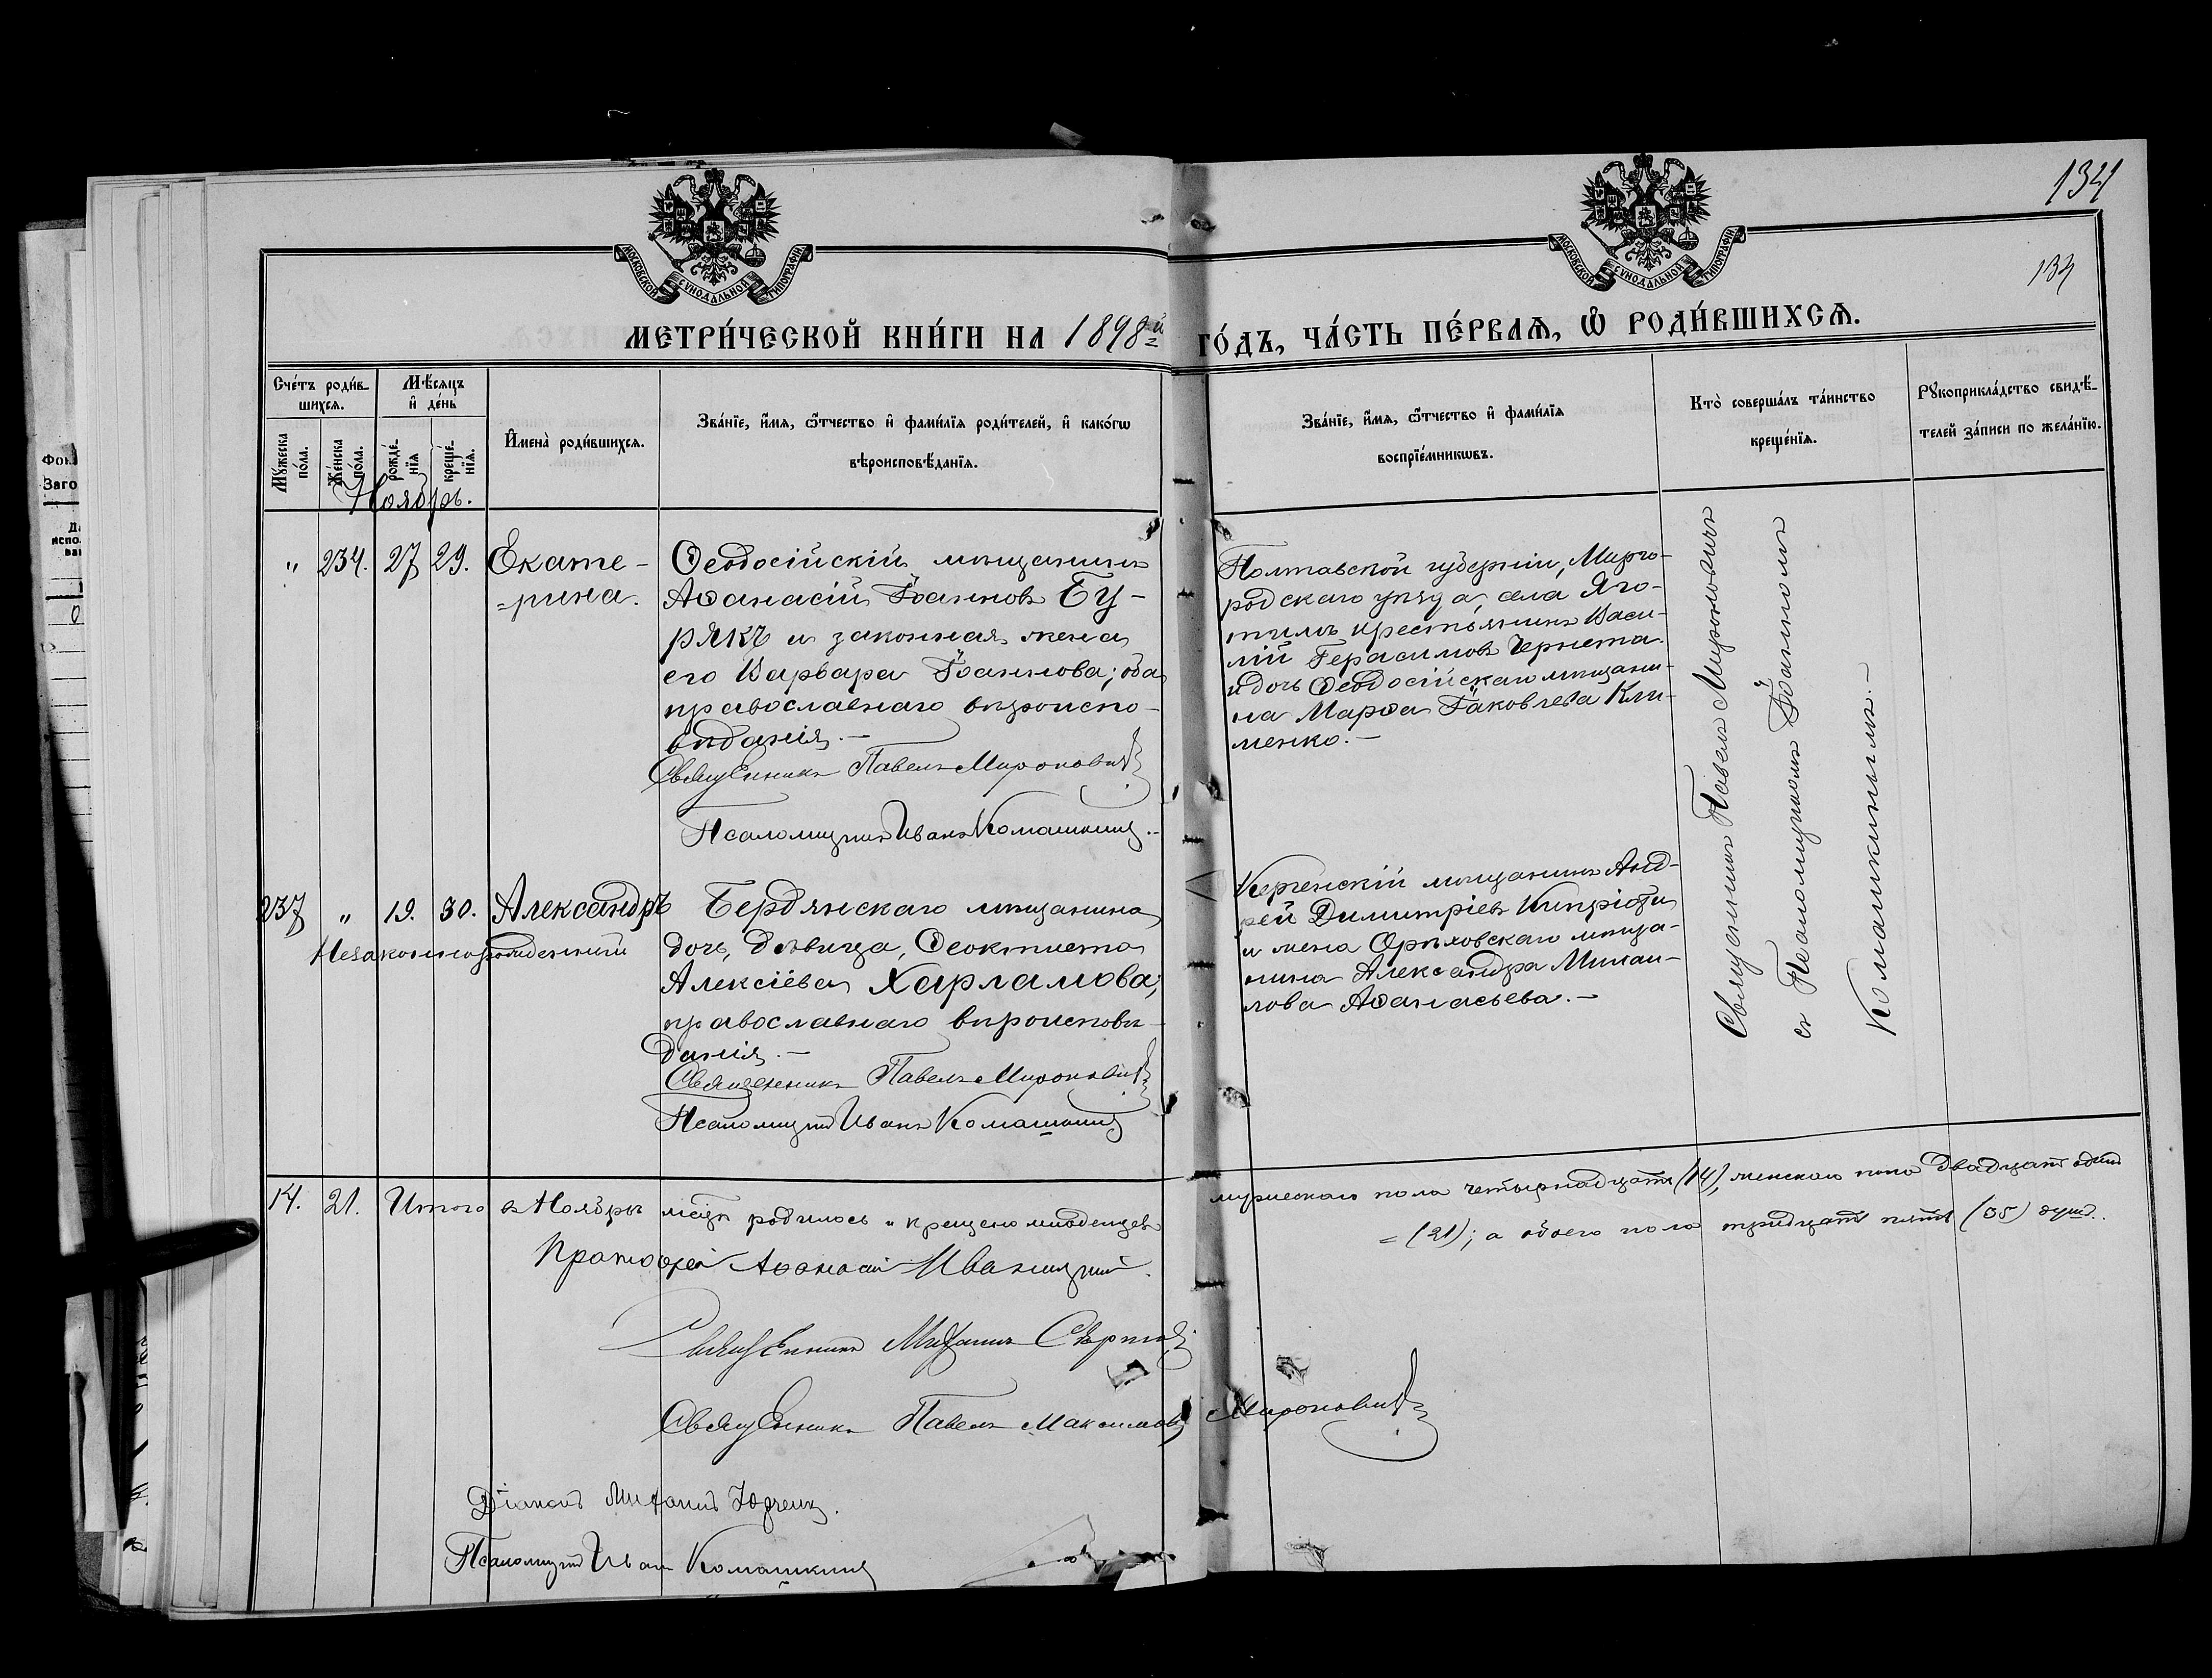 134
134
МОСКОВСКОЙ СѴНОДАЛЬНОЙ ТИПОГРАФІИ
МОСКОВСКОЙ СѴНОДАЛЬНОЙ ТИПОГРАФІИ
МЕТРИ́ЧЕСКОЙ КНИ́ГИ НА 1898й ГО́ДЪ, ЧА́СТЬ ПЕ́РВАѦ, Ѡ҆ РОДИ́ВШИХСѦ.
Сче́тъ роди́в-
шихсѧ.
Мꙋ́жеска по́ла.
Же́нска по́ла.
Мѣ́сѧцъ и҆ де́нь
рожде́-нїѧ
креще́-нїѧ.
И҆мена̀ роди́вшихсѧ.
Зва́нїе, и҆́мѧ, ѻ҆́тчество и҆ фами́лїѧ роди́телей, и҆ како́гѡ
вѣроисповѣ́данїѧ.
Зва́нїе, и҆́мѧ, ѻ҆́тчество и҆ фами́лїѧ
воспрїе́мникѡвъ.
Кто̀ соверша́лъ та́инство
креще́нїѧ.
Рꙋкоприкла́дство свидѣ́-
телей за́писи по жела́нїю.
Ноябрь.
" 234. 27 29. Екате-
=рина.
Ѳеодосійскій мѣщанинъ
Аѳанасій Іоанновъ Бу-
рякъ и законная жена
его Варвара Іоаннова; оба
православнаго вѣроиспо-
вѣданія.—
Священникъ Павелъ Мироновичъ
Псаломщикъ Иванъ Комашкинъ.
Полтавской губерніи, Мирго-
родскаго уѣзда, села Яго-
тинъ крестьянинъ Васи-
лій Герасимовъ Чернета
и дочь Ѳеодосійскаго мѣщани-
на Марѳа Іаковлева Кли-
менко.—
Священникъ Павелъ Мироновичъ
съ Псаломщикомъ Іоанномъ
Комашкинымъ.—
237 " 19. 30. Александръ
Незаконнорожденный
Бердянскаго мѣщанина
дочь, дѣвица, Ѳеоктиста
Алексіева Харламова,
православнаго вѣроисповѣ-
данія.—
Священникъ Павелъ Мироновичъ
Псаломщикъ Иванъ Комашкинъ
Керченскій мѣщанинъ Анд-
рей Димитріевъ Кипріоти
и жена Орѣховскаго мѣща-
нина Александра Михаи-
лова Аѳанасьева.—
14. 21. Итого въ Ноябрѣ мѣсяцѣ родилось и крещено младенцевъ мужескаго пола четырнадцать (14), женскаго пола двадцать одинъ
= (21); а обоего пола тридцать пять (35) душъ.
Протоіерей Аѳанасій Иваницкій.
Священникъ Михаилъ
Священникъ Павелъ Максимовъ Мироновичъ
Діаконъ Михаилъ
Псаломщикъ Иванъ Комашкинъ